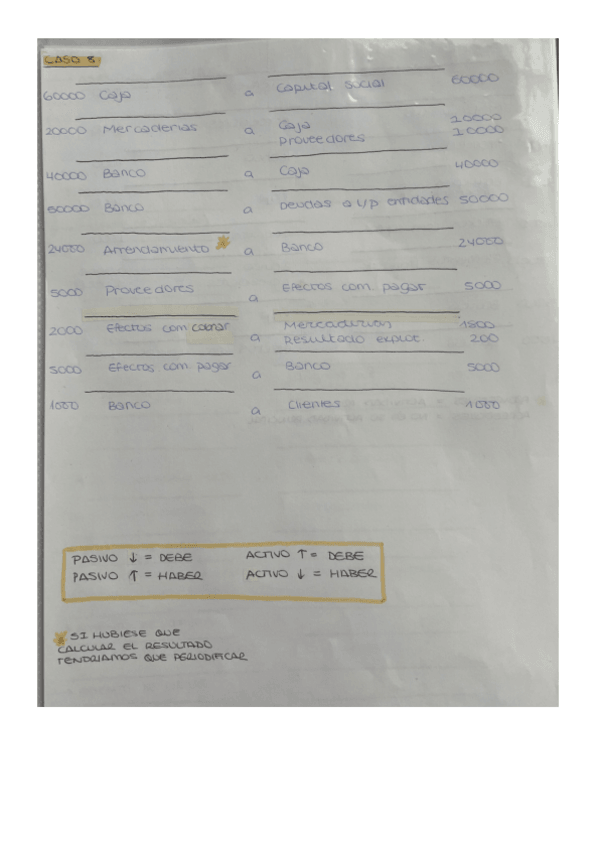 CASO 8
60000 Caja a Capital Social 60000
20000 Mercaderias a Caja 10000
Proveedores 10000
40000 Banco a Caja 40000
50000 Banco a Deudas a l/p entidades 50000
24000 Arrendamiento a Banco 24000
5000 Proveedores a Efectos com. pagar 5000
2000 Efectos com cobrar a Mercaderias 1800
Resultado explot. 200
5000 Efectos com pagar a Banco 5000
1000 Banco a Clientes 1000
PASIVO ↓ = DEBE ACTIVO ↑ = DEBE
PASIVO ↑ = HABER ACTIVO ↓ = HABER
SI HUBIESE QUE
CALCULAR EL RESULTADO
TENDRIAMOS QUE PERIODIFICAR